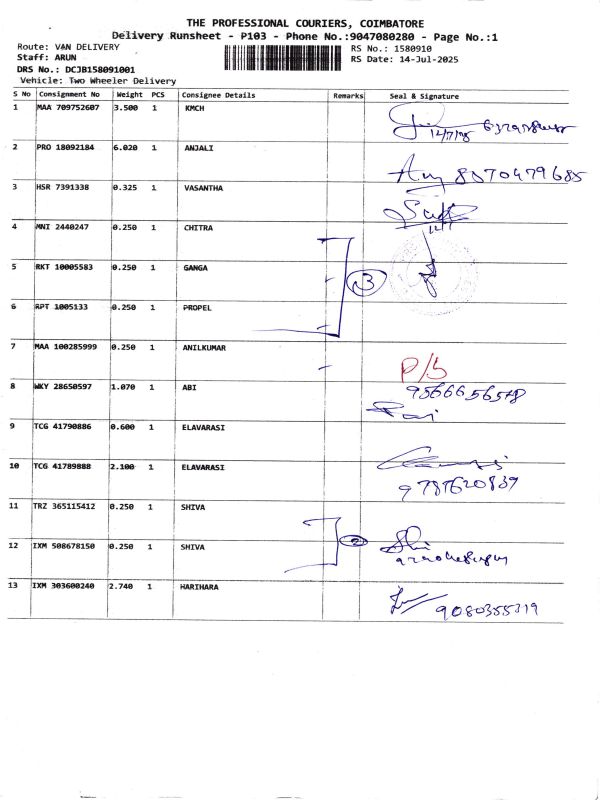 THE PROFESSIONAL COURIERS, COIMBATORE
Delivery Runsheet - P103 - Phone No.:9047080280 - Page No.:1
Route: VAN DELIVERY
RS No.: 1580910
Staff: ARUN
RS Date: 14-Jul-2025
DRS No.: DCJB158091001
Vehicle: Two Wheeler Delivery
S No Consignment No Weight PCS Consignee Details Remarks Seal & Signature
1 MAA 709752607 3.500 1 KMCH
2 PRO 18092184 6.020 1 ANJALI
8870479685
3 HSR 7391338 0.325 1 VASANTHA
4 MNI 2440247 0.250 1 CHITRA
5 RKT 10005583 0.250 1 GANGA
3
6 RPT 1005133 0.250 1 PROPEL
7 MAA 100285999 0.250 1 ANILKUMAR
P/S
8 WKY 28650597 1.070 1 ABI
9 TCG 41790886 0.600 1 ELAVARASI
10 TCG 41789888 2.100 1 ELAVARASI
9787620839
11 TRZ 365115412 0.250 1 SHIVA
12 IXM 508678150 0.250 1 SHIVA
2
13 IXM 303600240 2.740 1 HARIHARA
9080355319